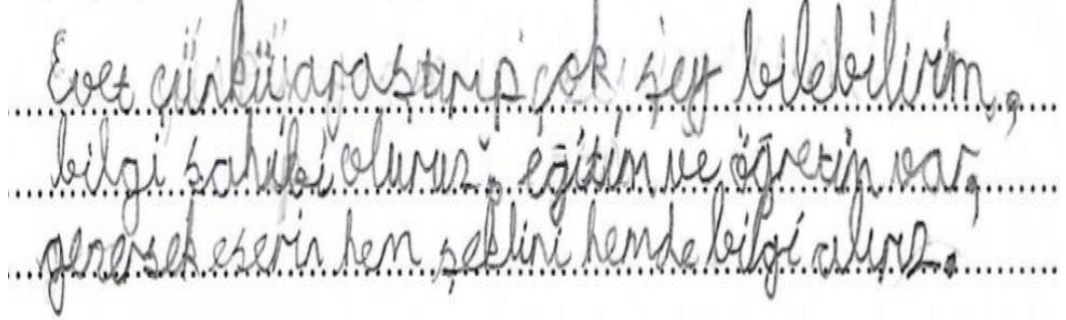 Evet çünkü araştırıp çok şey bilebilirim,
bilgi sahibi oluruz, eğitim ve öğretim var,
gezersek eserin hem şeklini hemde bilgi alırız.